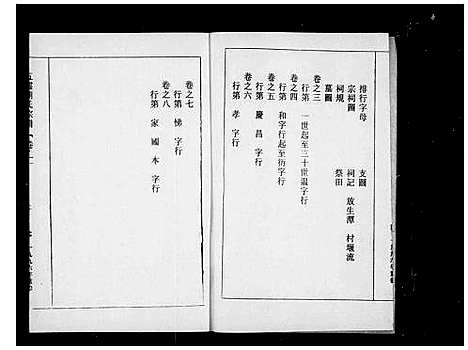 排行字母 支圖
宗祠圖 祠記 放生潭 村堰流
祠規 祭田
墓圖
卷之三
行第 一世起至三十世蓋字行
卷之四
行第 和字行起至衍字行
卷之五
行第 慶昌 字行
卷之六
行第 孝 字行
卷之七
行第 悌 字行
卷之八
行第 家國本 字行